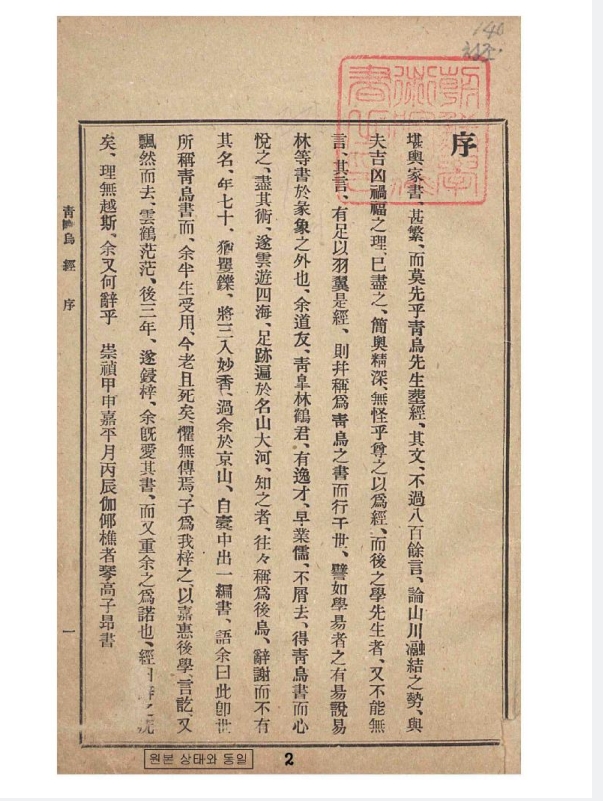 序
堪輿家書、甚繁、而莫先乎青鳥先生葬經、其文、不過八百餘言、論山川融結之勢、與
夫吉凶禍福之理、已盡之、簡奧精深、無怪乎尊之以爲經、而後之學先生者、又不能無
言、其言、有足以羽翼是經、則幷稱爲靑鳥之書而行于世、譬如學易者之有易說易
林等書於彖象之外也、余道友、靑皐林鶴君、有逸才、早業儒、不屑去、得靑鳥書而心
悅之、盡其術、遂雲遊四海、足跡遍於名山大河、知之者、往々稱爲後鳥、辭謝而不有
其名、年七十、猶矍鑠、將三入妙香、過余於京山、自橐中出一編書、語余曰此卽世
所稱靑鳥書而、余半生受用、今老且死矣懼無傳焉、子爲我梓之、以嘉惠後學、言訖、又
飄然而去、雲鶴茫茫、後三年、遂鋟梓、余旣愛其書、而又重余之爲諾也、經曰
矣、理無越斯、余又何辭乎 崇禎甲申嘉平月丙辰伽倻樵者琴高子昻書
靑鳥經 序
一
원본 상태와 동일
2